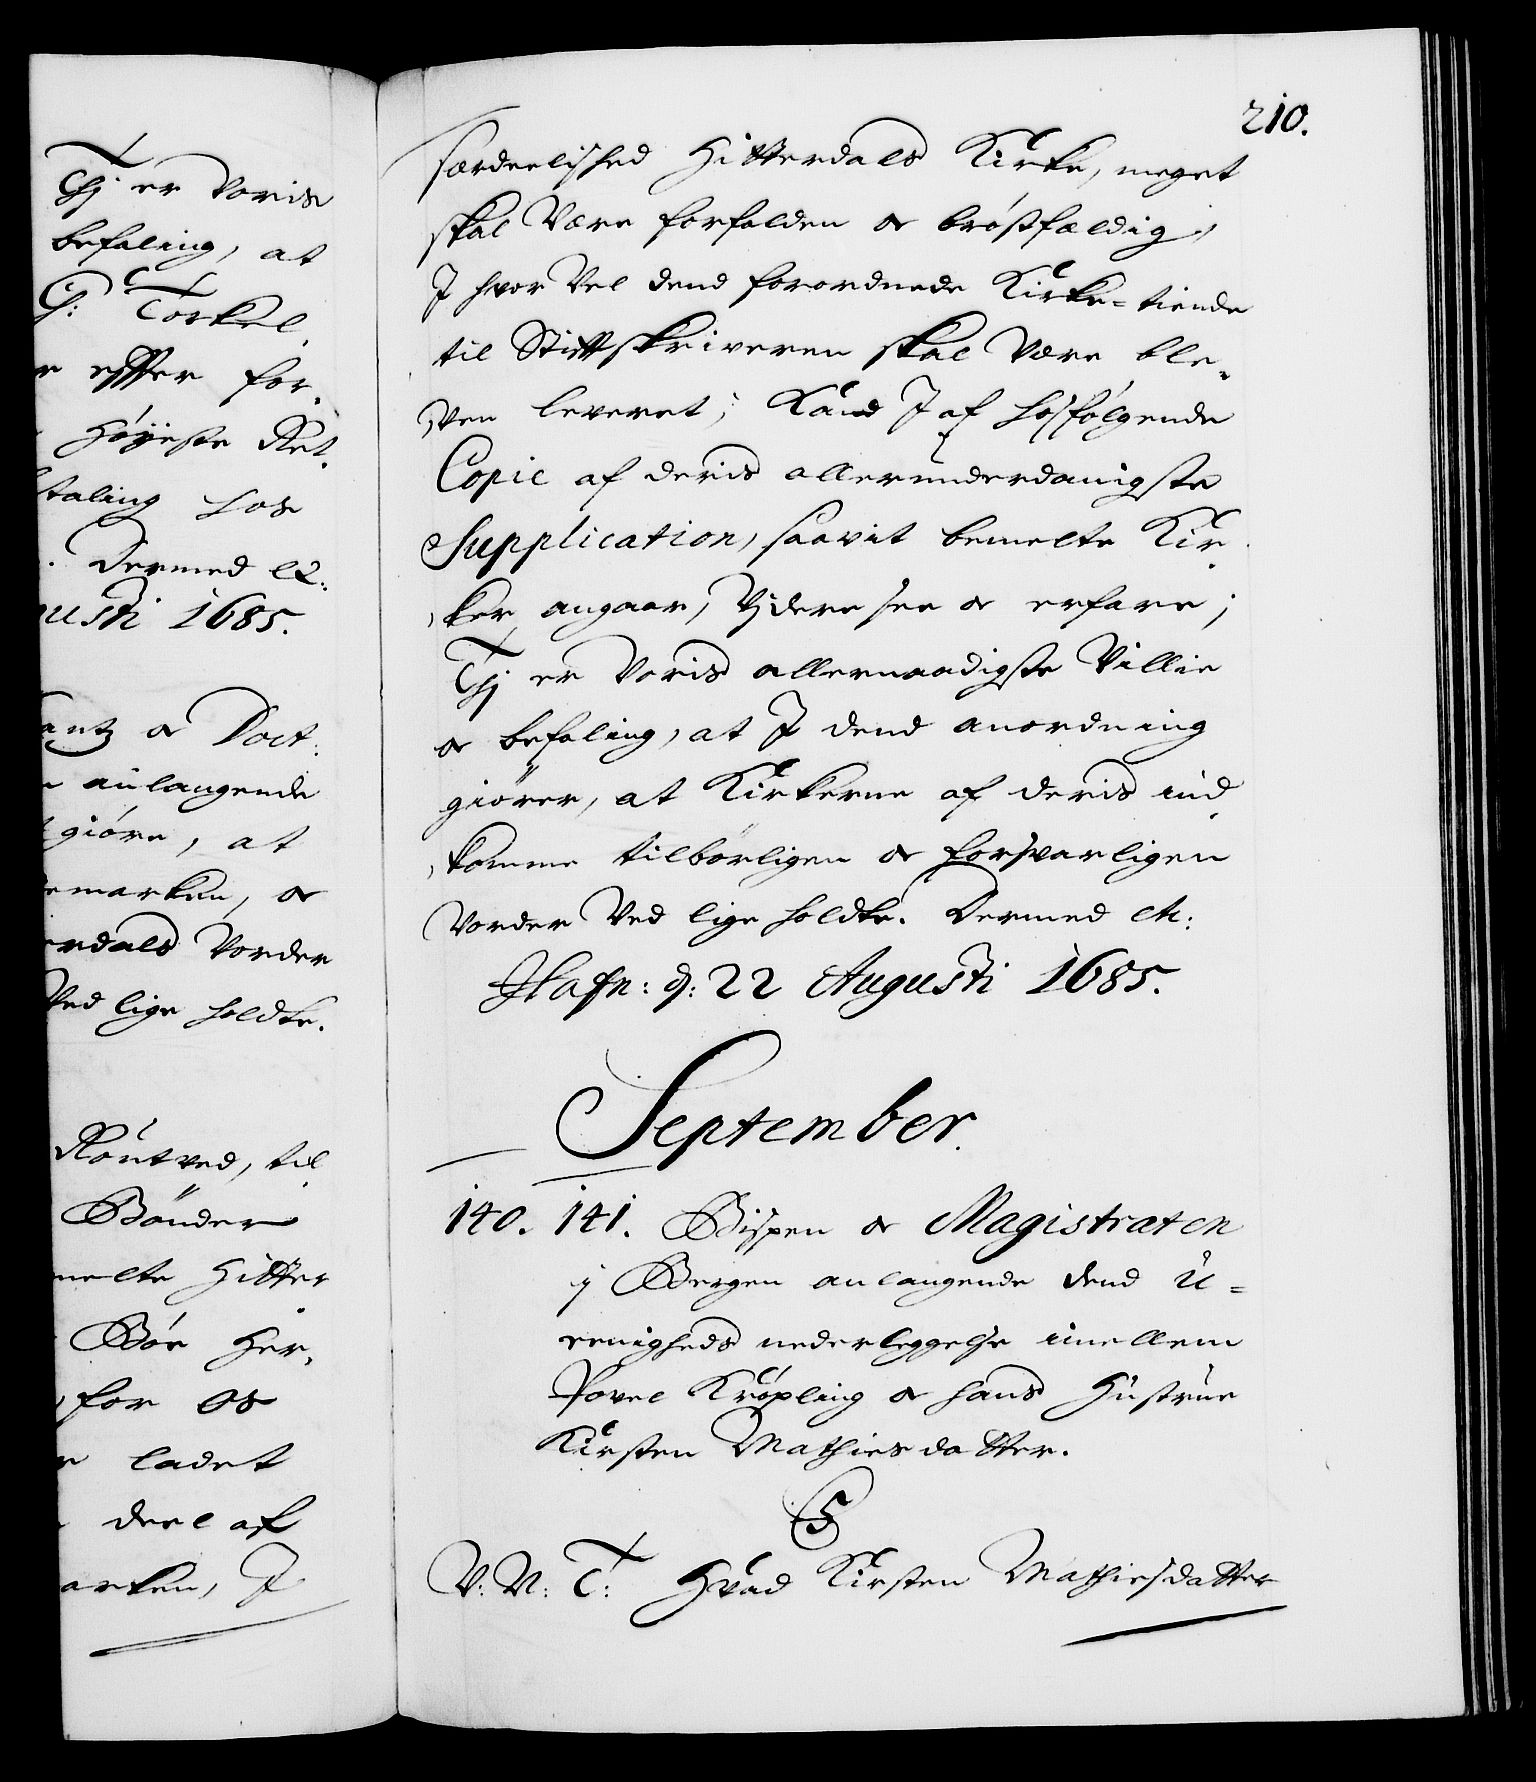 Thj er voris
befaling, at
H: Torkel
r effter for-
Høyeste Ret
taling hos
. Dermed etc:
usti 1685.
antz oc Doct:
anlangende
giøre, at
emarken, oc
erdals vorder
ved lige holdte.
Røntved, til
Bønder
melte Hitter
Bøe Her-
for os
ladet
deel af
arken, J
210.
særdeelished Hitterdals Kirke, meget
skal være forfalden oc brøstfældig,
J hvor vel dend forordnede Kirke-tiende
til Stifftskriveren skal være ble-
ven leveret; Kand J af hosfølgende
Copie af deris allerunderdanigste
Supplication, saavit bemelte Kir-
ker angaar, vjdere see oc erfare;
Thj er voris allernaadigste Villie
oc befaling, at J dend anordning
giører, at Kirkerne af deris ind-
komme tilbørligen oc forsvarligen
vorder ved lige holdte. Dermed etc:
Hafn: d: 22 Augusti 1685.
September.
140. 141. Bispen oc Magistraten
i Bergen anlangende dend U=
eenigheds nederleggelse imellem
Povel Krøpling oc hans Hustrue
Kirsten Mathiesdatter.
C5
V: N: T: Hvad Kirsten Mathiesdatter